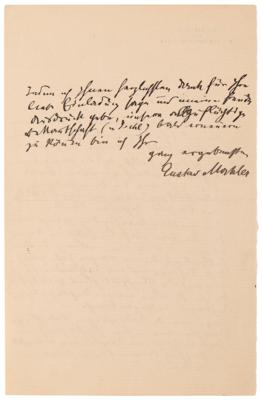 Indem ich Ihnen herzlichsten Dank für Ihre
liebe Einladung sage und meiner Freude
Ausdruck gebe, unsere
bald erneuern
zu können bin ich Ihr
ganz ergebenster
Gustav Mahler